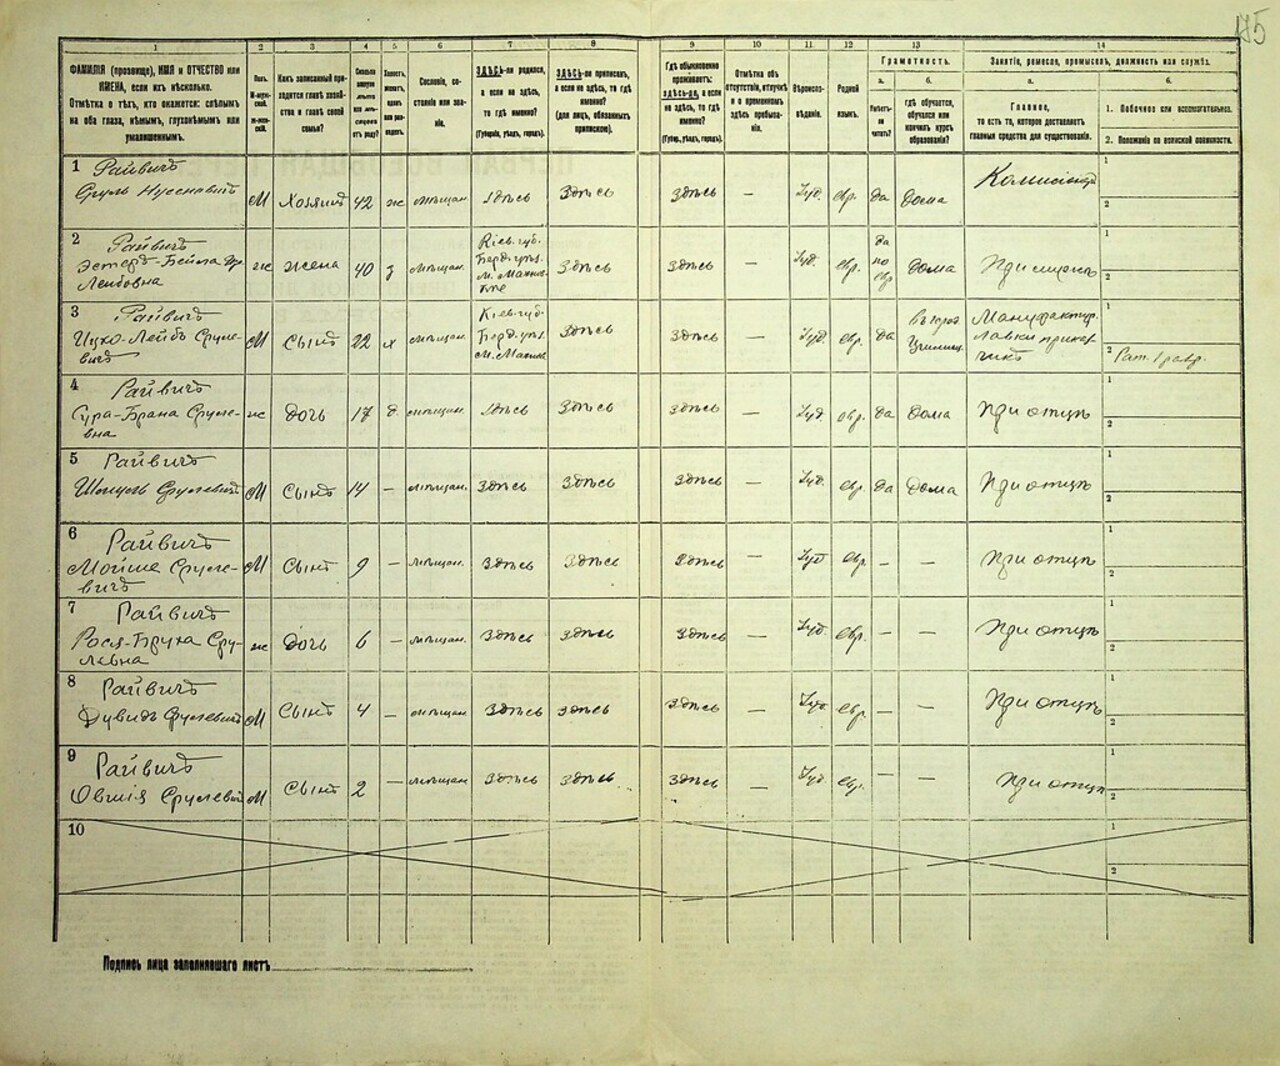 175
1
2
3
4
5
6
7
8
9
10
11
12
13
14
ФАМИЛІЯ (прозвище), ИМЯ и ОТЧЕСТВО или
ИМЕНА, если ихъ нѣсколько.
Отмѣтка о тѣхъ, кто окажется: слѣпымъ
на оба глаза, нѣмымъ, глухонѣмымъ или
умалишеннымъ.
Какъ записанный при-
ходится главѣ хозяй-
ства и главѣ своей
семьи?
Сословіе, со-
стояніе или зва-
ніе.
ЗДѢСЬ-ли родился,
а если не здѣсь,
то гдѣ именно?
(Губернія, уѣздъ, городъ).
ЗДѢСЬ-ли приписанъ,
а если не здѣсь, то гдѣ
именно?
(для лицъ, обязанныхъ
припискою).
Гдѣ обыкновенно
проживаетъ:
здѣсь-ли, а если
не здѣсь, то гдѣ
именно?
(Губер., уѣздъ, городъ).
Отмѣтка объ
отсутствіи, отлучкѣ
и о временномъ
здѣсь пребыва-
ніи.
Вѣроиспо-
вѣданіе.
Родной
языкъ.
Грамотность.
а.
Умѣетъ-
ли
читать?
б.
гдѣ обучается,
обучался или
кончилъ курсъ
образованія?
Занятіе, ремесло, промыселъ, должность или служба.
а.
Главное,
то есть то, которое доставляетъ
главныя средства для существованія.
б.
1. Побочное или вспомогательное.
2. Положеніе по воинской повинности.
1 Райвичъ
Сруль Нусеновичъ М Хозяинъ 42 ж мѣщан. здѣсь здѣсь здѣсь — Іуд. евр. да дома
1
2
2 Райвичъ
Эстеръ-Бейла
Лейбовна ж жена 40 з мѣщан.
Кіев. губ.
Берд. уѣз.
здѣсь здѣсь — Іуд. евр.
да
по
евр
дома При мужѣ
1
2
3 Райвичъ
Ицко-Лейбъ Сруле-
вичъ М Сынъ 22 х мѣщан.
Кіев. губ.
Берд. уѣз.
здѣсь здѣсь — Іуд. евр. да
Мануфактур.
лавки приказ-
чикъ
1
2 Рат. 1 разр.
4 Райвичъ
Сура-Брана Сруле-
вна ж Дочь 17 д. мѣщан. здѣсь здѣсь здѣсь — Іуд. евр. да дома При отцѣ
1
2
5 Райвичъ
Шмуль Срулевичъ М Сынъ 14 — мѣщан. здѣсь здѣсь здѣсь — Іуд. евр. да дома При отцѣ
1
2
6 Райвичъ
Мойше Сруле-
вичъ М Сынъ 9 — мѣщан. здѣсь здѣсь здѣсь — Іуд евр. — — При отцѣ
1
2
7 Райвичъ
Рося-Бруха Сру-
левна ж Дочь 6 — мѣщан. здѣсь здѣсь здѣсь — Іуд. евр. — — При отцѣ
1
2
8 Райвичъ
Дувидъ Срулевичъ М Сынъ 4 — мѣщан здѣсь здѣсь здѣсь — Іуд евр. — — При отцѣ
1
2
9 Райвичъ
Овшія Срулевич М Сынъ 2 — мѣщан здѣсь здѣсь здѣсь — Іуд евр. — — При отцѣ
1
2
10
1
2
Подпись лица заполнявшаго листъ